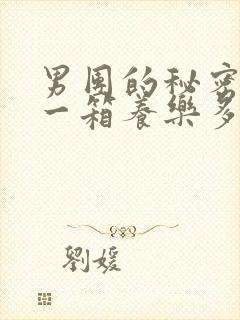 男团的秘密
一箱养樂多
劉媛